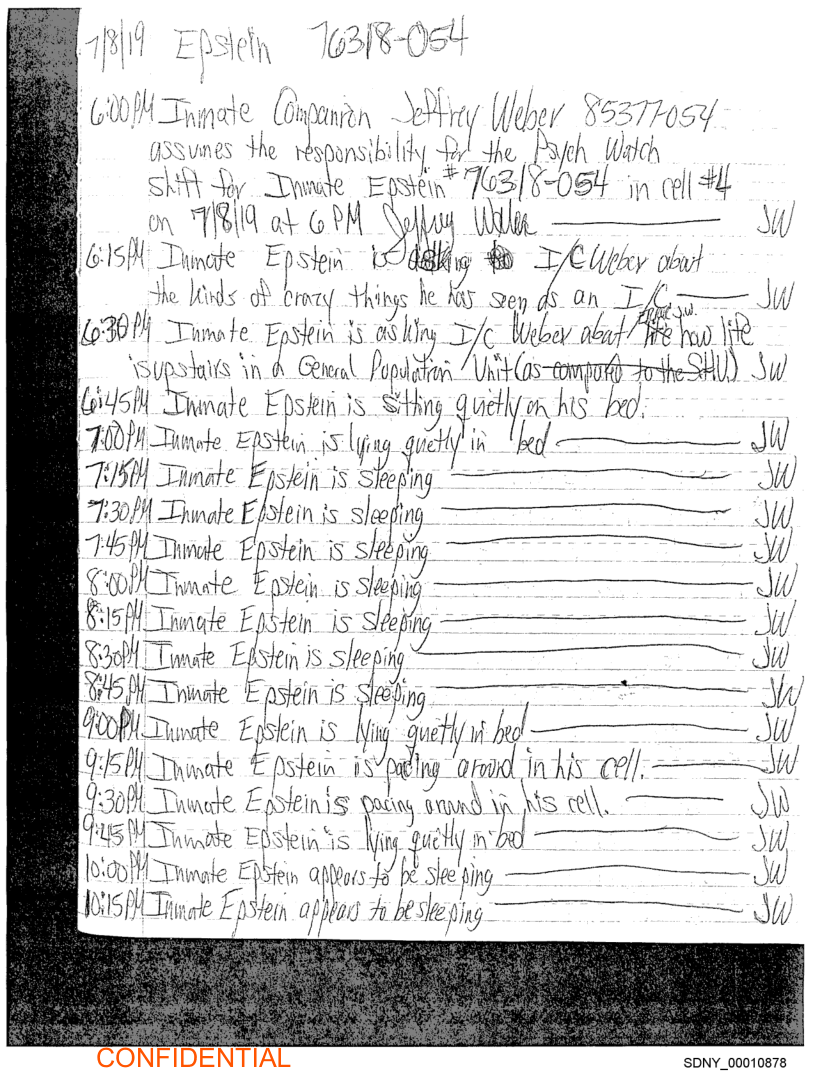 7/8/19 Epstein 76318-054
6:00PM Inmate Companion Jeffrey Weber 85377-054
assumes the responsibility for the Psych Watch
shift for Inmate Epstein #76318-054 in cell #4
on 7/8/19 at 6 PM Jeffrey Weber JW
6:15PM Inmate Epstein is asking I/C Weber about
the kinds of crazy things he has seen as an I/C JW
6:30PM Inmate Epstein is asking I/C Weber about life Error J.W. how life
is upstairs in a General Population Unit (as compared to the SHU) JW
6:45PM Inmate Epstein is sitting quetly on his bed.
7:00PM Inmate Epstein is lying quetly in bed JW
7:15PM Inmate Epstein is sleeping JW
7:30PM Inmate Epstein is sleeping JW
7:45PM Inmate Epstein is sleeping JW
8:00PM Inmate Epstein is sleeping JW
8:15PM Inmate Epstein is sleeping JW
8:30PM Inmate Epstein is sleeping JW
8:45PM Inmate Epstein is sleeping JW
9:00PM Inmate Epstein is lying quetly in bed JW
9:15PM Inmate Epstein is pacing around in his cell. JW
9:30PM Inmate Epstein is pacing around in his cell. JW
9:45PM Inmate Epstein is lying quetly in bed JW
10:00PM Inmate Epstein appears to be sleeping JW
10:15PM Inmate Epstein appears to be sleeping JW
CONFIDENTIAL
SDNY_00010878